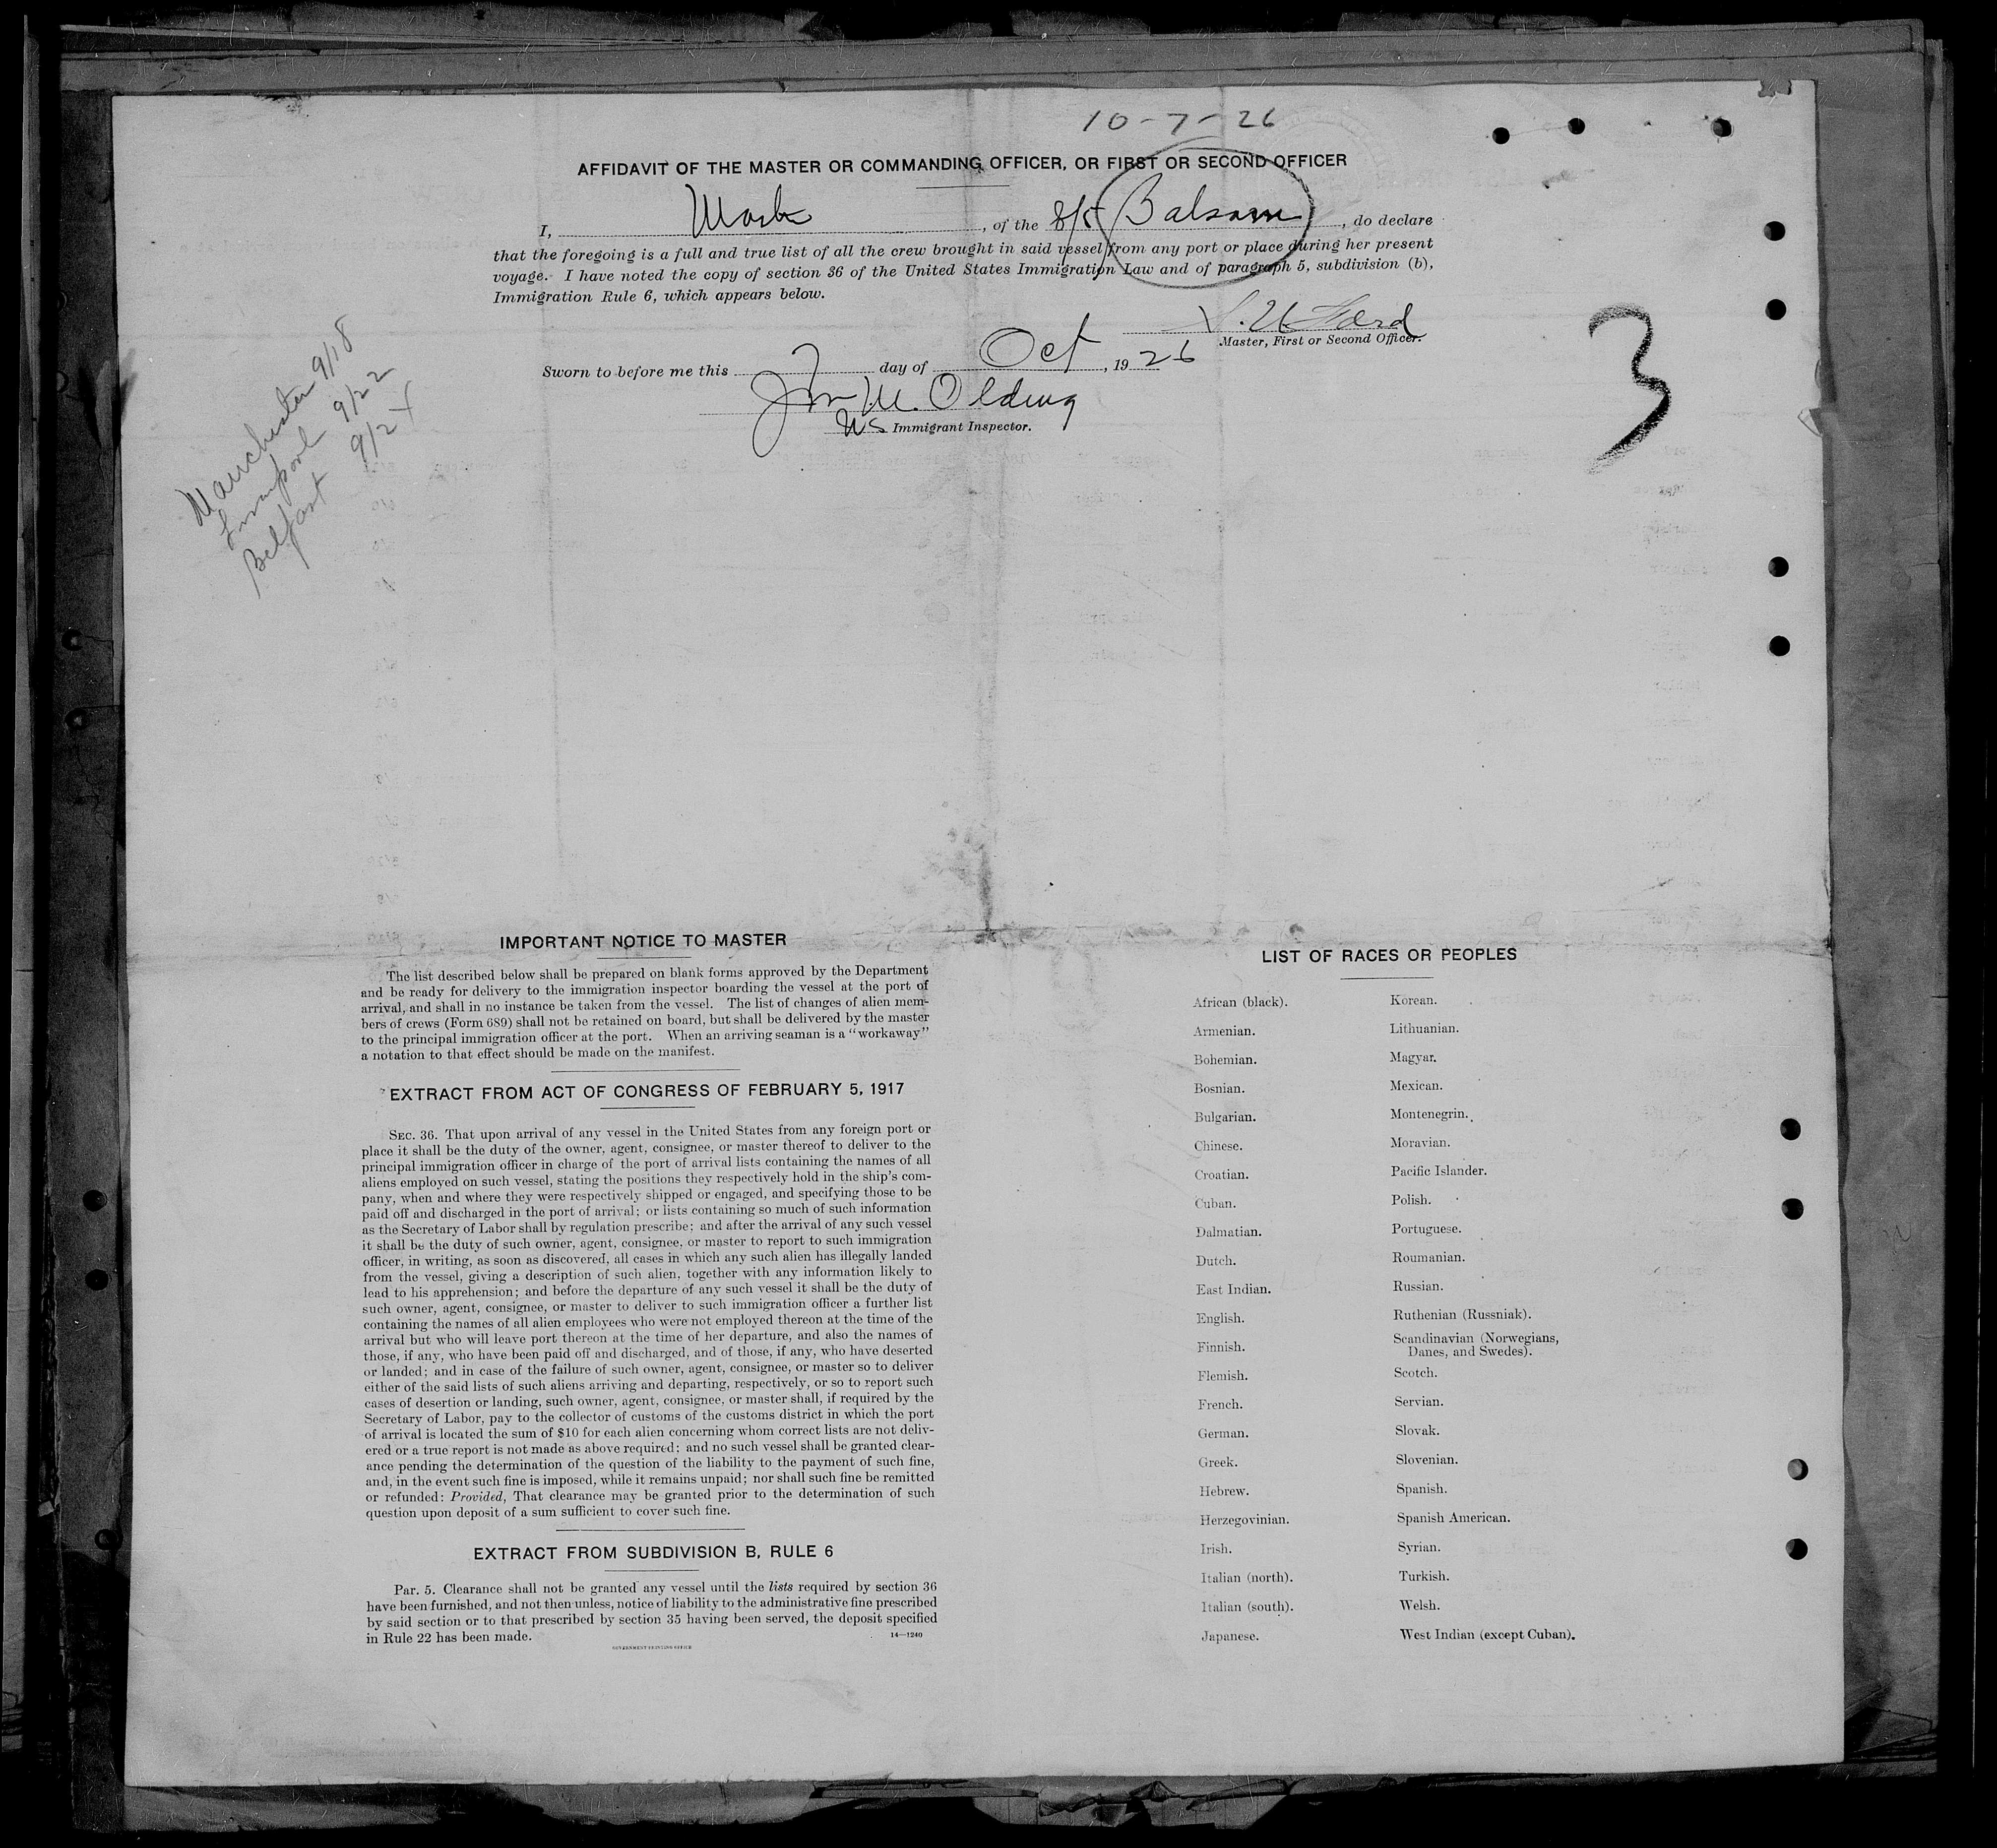 10-7-26
AFFIDAVIT OF THE MASTER OR COMMANDING OFFICER, OR FIRST OR SECOND OFFICER
I, , of the S/S Balsam, do declare
that the foregoing is a full and true list of all the crew brought in said vessel from any port or place during her present
voyage. I have noted the copy of section 36 of the United States Immigration Law and of paragraph 5, subdivision (b),
Immigration Rule 6, which appears below.
Ford
Master, First or Second Officer.
Sworn to before me this 7 day of Oct, 1926
Jno M. Olding
US Immigrant Inspector.
3
Manchester 9/18
Liverpool 9/22
Belfast 9/24
IMPORTANT NOTICE TO MASTER
The list described below shall be prepared on blank forms approved by the Department
and be ready for delivery to the immigration inspector boarding the vessel at the port of
arrival, and shall in no instance be taken from the vessel. The list of changes of alien mem-
bers of crews (Form 689) shall not be retained on board, but shall be delivered by the master
to the principal immigration officer at the port. When an arriving seaman is a "workaway"
a notation to that effect should be made on the manifest.
EXTRACT FROM ACT OF CONGRESS OF FEBRUARY 5, 1917
SEC. 36. That upon arrival of any vessel in the United States from any foreign port or
place it shall be the duty of the owner, agent, consignee, or master thereof to deliver to the
principal immigration officer in charge of the port of arrival lists containing the names of all
aliens employed on such vessel, stating the positions they respectively hold in the ship's com-
pany, when and where they were respectively shipped or engaged, and specifying those to be
paid off and discharged in the port of arrival; or lists containing so much of such information
as the Secretary of Labor shall by regulation prescribe; and after the arrival of any such vessel
it shall be the duty of such owner, agent, consignee, or master to report to such immigration
officer, in writing, as soon as discovered, all cases in which any such alien has illegally landed
from the vessel, giving a description of such alien, together with any information likely to
lead to his apprehension; and before the departure of any such vessel it shall be the duty of
such owner, agent, consignee, or master to deliver to such immigration officer a further list
containing the names of all alien employees who were not employed thereon at the time of the
arrival but who will leave port thereon at the time of her departure, and also the names of
those, if any, who have been paid off and discharged, and of those, if any, who have deserted
or landed; and in case of the failure of such owner, agent, consignee, or master so to deliver
either of the said lists of such aliens arriving and departing, respectively, or so to report such
cases of desertion or landing, such owner, agent, consignee, or master shall, if required by the
Secretary of Labor, pay to the collector of customs of the customs district in which the port
of arrival is located the sum of $10 for each alien concerning whom correct lists are not deliv-
ered or a true report is not made as above required; and no such vessel shall be granted clear-
ance pending the determination of the question of the liability to the payment of such fine,
and, in the event such fine is imposed, while it remains unpaid; nor shall such fine be remitted
or refunded: Provided, That clearance may be granted prior to the determination of such
question upon deposit of a sum sufficient to cover such fine.
EXTRACT FROM SUBDIVISION B, RULE 6
Par. 5. Clearance shall not be granted any vessel until the lists required by section 36
have been furnished, and not then unless, notice of liability to the administrative fine prescribed
by said section or to that prescribed by section 35 having been served, the deposit specified
in Rule 22 has been made.
14—1240
GOVERNMENT PRINTING OFFICE
LIST OF RACES OR PEOPLES
African (black).
Armenian.
Bohemian.
Bosnian.
Bulgarian.
Chinese.
Croatian.
Cuban.
Dalmatian.
Dutch.
East Indian.
English.
Finnish.
Flemish.
French.
German.
Greek.
Hebrew.
Herzegovinian.
Irish.
Italian (north).
Italian (south).
Japanese.
Korean.
Lithuanian.
Magyar.
Mexican.
Montenegrin.
Moravian.
Pacific Islander.
Polish.
Portuguese.
Roumanian.
Russian.
Ruthenian (Russniak).
Scandinavian (Norwegians,
Danes, and Swedes).
Scotch.
Servian.
Slovak.
Slovenian.
Spanish.
Spanish American.
Syrian.
Turkish.
Welsh.
West Indian (except Cuban).